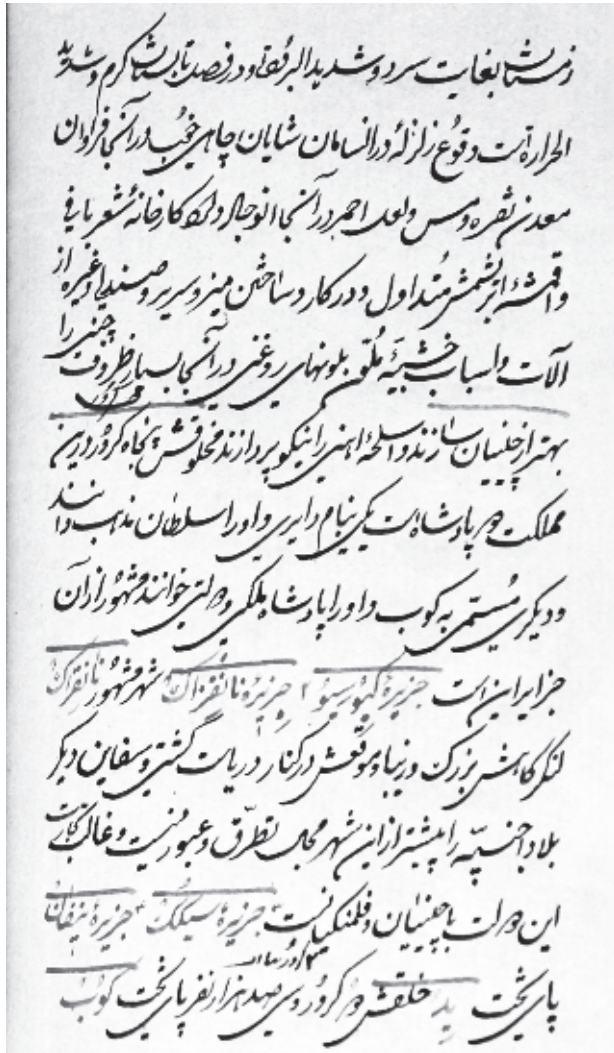 زمستانش بغایت سرد و شدید البروده و در فصل تابستانش گرم و شدید
الحراره است وقوع زلزله در انسامان شایان چاهی خوب در آنجا فراوان
معدن نقره و مس و لعل احمر در آنجا انوجال و لک کارخانهٔ شعربافی
و اقمشهٔ ابریشمش متداول و در کارد ساختن میز و سریر و صندلی و غیره از
آلات و اسباب خشبیهٔ ملون بلونهای روغنی در آنجا بسیار ظروف چینی را
بهتر از چینیان سازند و اسلحهٔ اهنی را نیکو پردازند مخلوقش پنجاه کرور درین
مملکت دو پادشاه است یکی بنام دایری و او را سلطان مذهب دانند
و دیگری مسمی به کوب و او را پادشاه ملکی و دولتی خوانند مشهور از آن
جزایر این است جزیرهٔ کیورسیو ۲ جزیرهٔ نانقزاک شهر مشهور نانقزاک
لنگرگاهش بزرگ و زیبا و موقعش در کنار دریاست کشتی و سفاین دیگر
بلاد اجنبیه را پیشتر از این شهر مجال تطرق و عبور نیست و غالب تجارت
این دولت با چینیان و فلمنکیانست ۳ جزیرهٔ سیکک ۴ جزیرهٔ نیفان
پای تخت ید خلقش دو کرور و سیصد هزار نفر پای تخت کوب